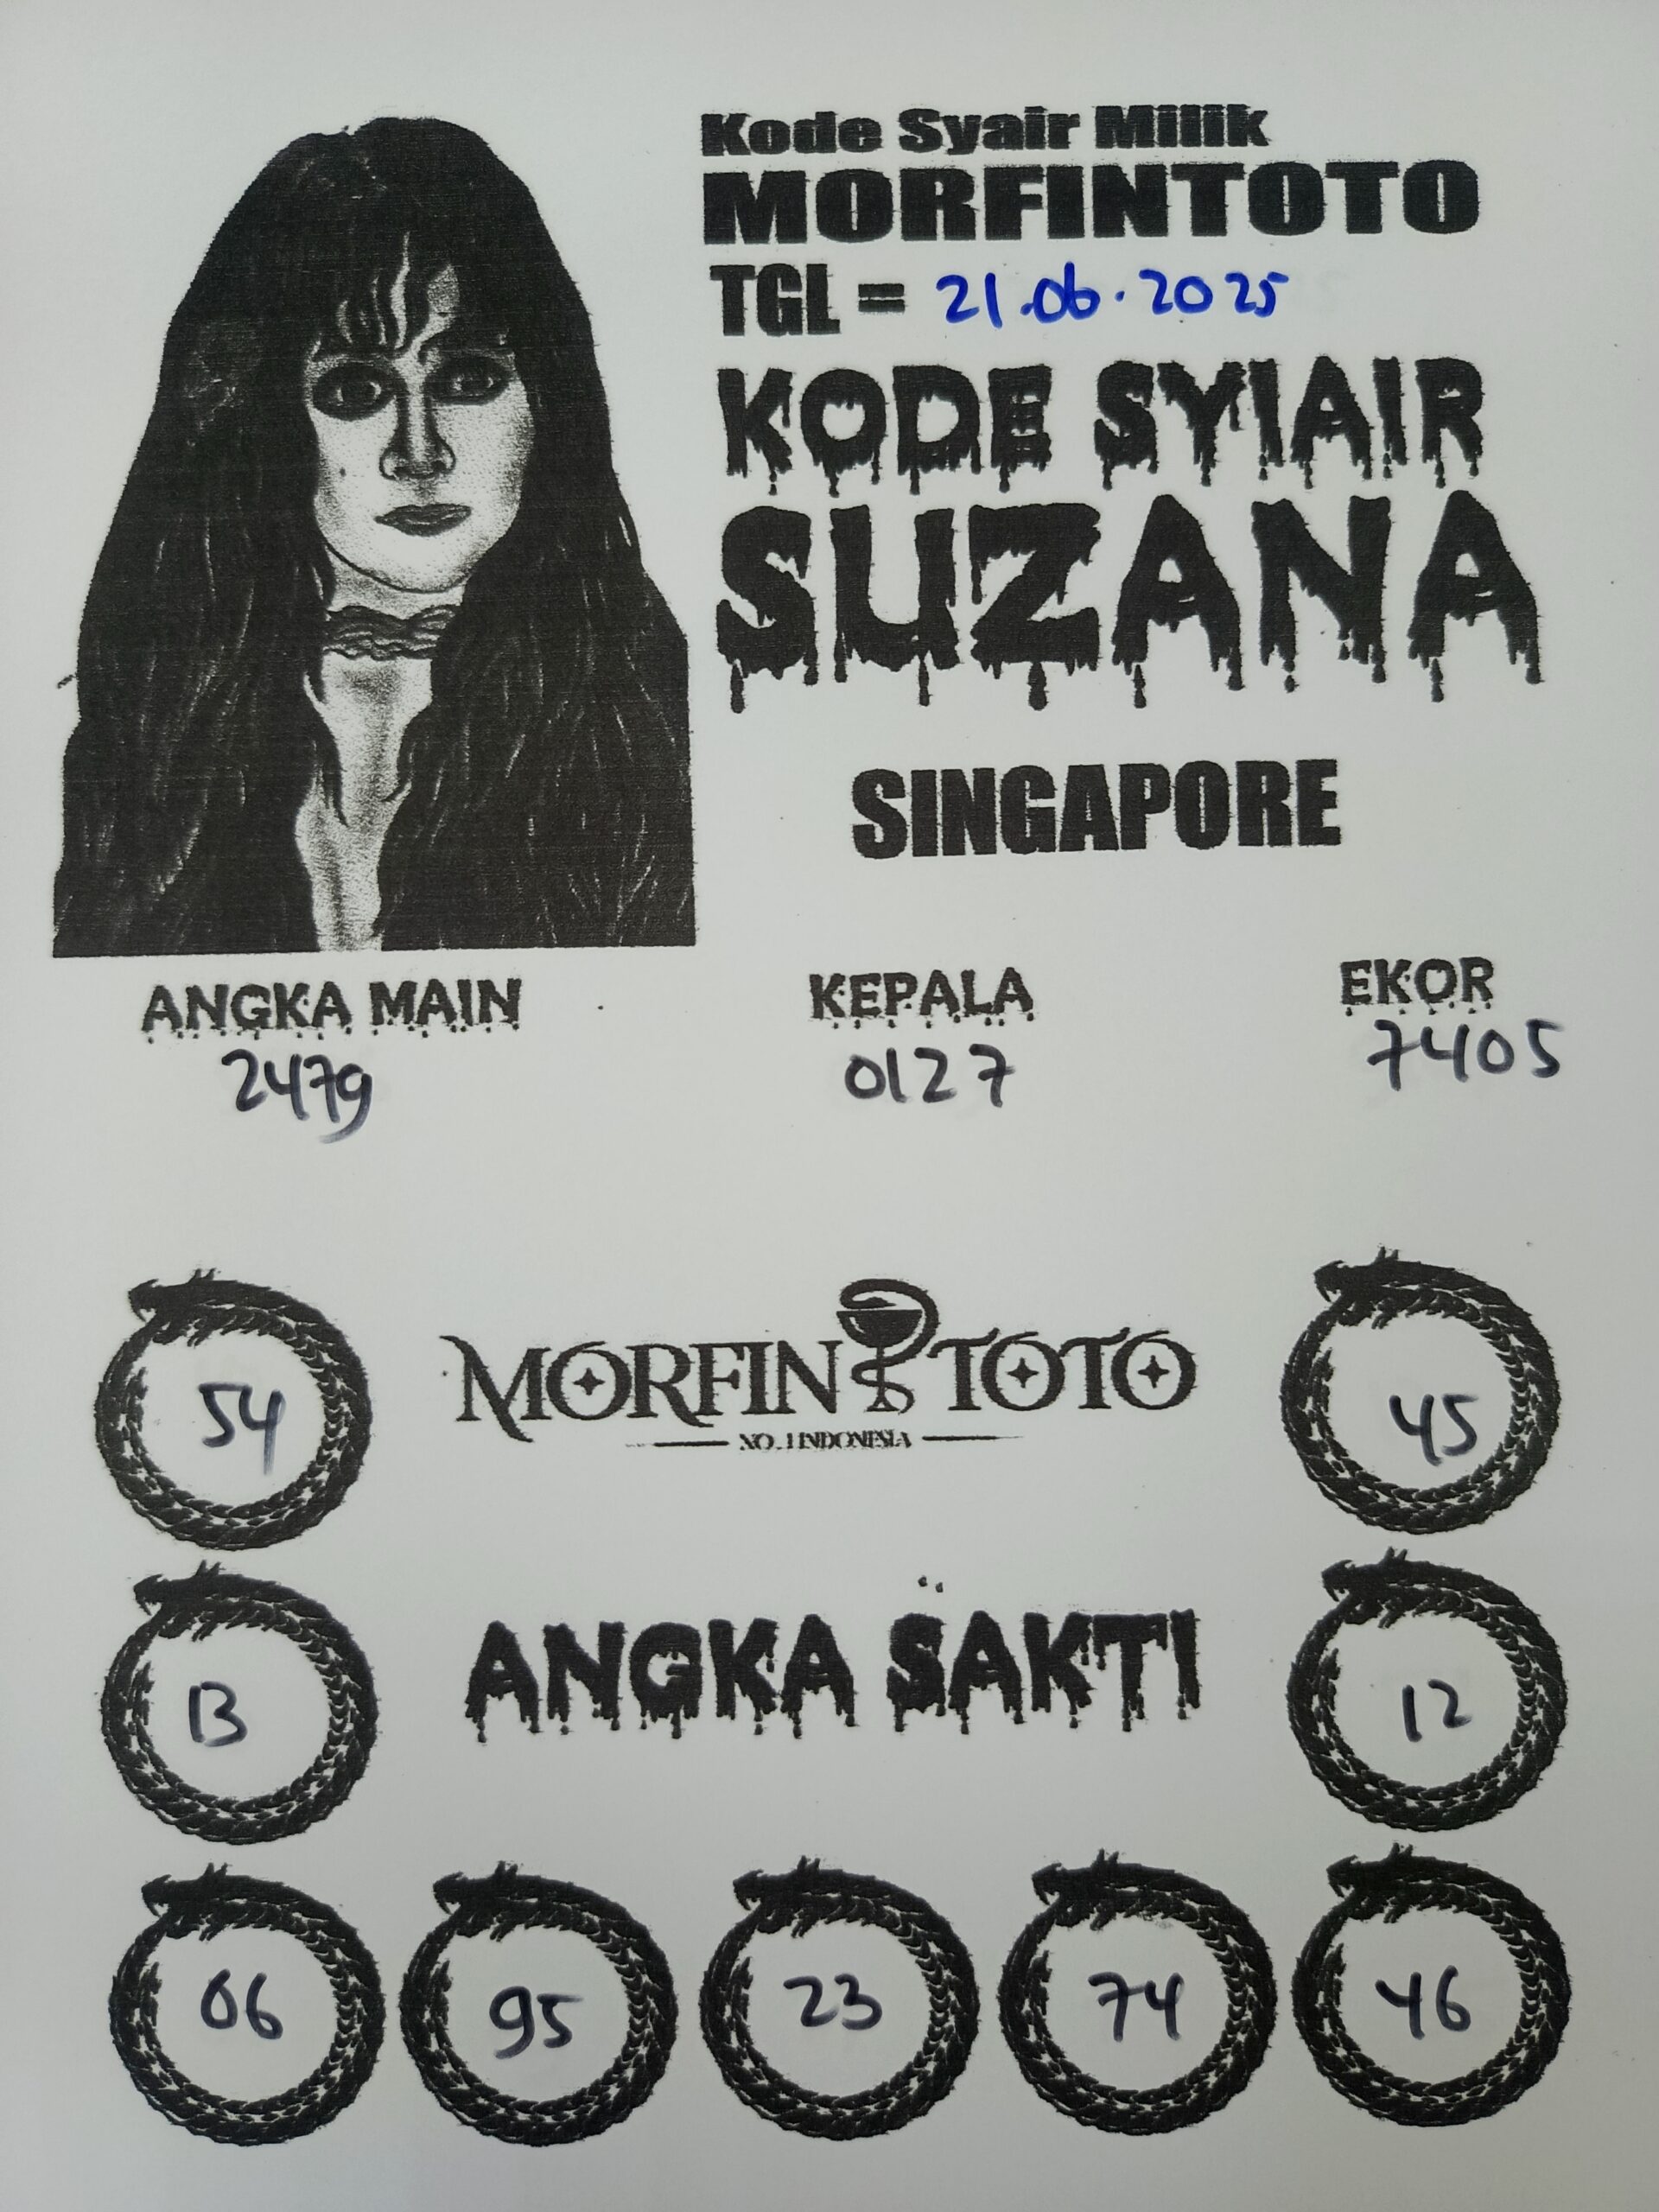 Kode Syair Milik
MORFINTOTO
TGL = 21.06.2025
KODE SYIAIR
SUZANA
SINGAPORE
ANGKA MAIN KEPALA EKOR
2479 0127 7405
54 MORFIN TOTO 45
NO.1 INDONESIA
13 ANGKA SAKTI 12
06 95 23 74 46